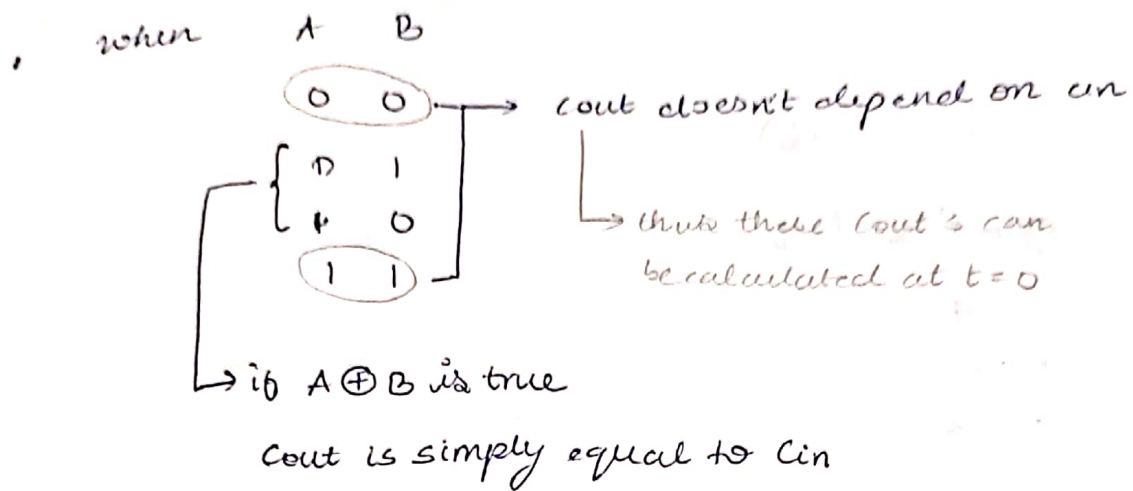 when A B
0 0 → cout doesn't depend on cin
0 1
→ thus these Cout's can
1 0
be calculated at t = 0
1 1
→ if A ⊕ B is true
Cout is simply equal to Cin